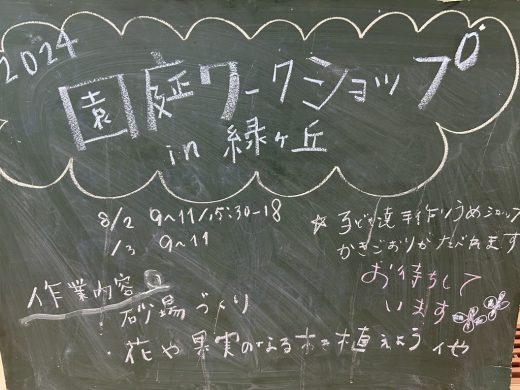 2024
園庭ワークショップ
in 緑ヶ丘
8/2 9~11/15:30-18
/3 9~11
☆子ども達手作りうめシロップ
かきごおりがたべれます
お待ちして
います
作業内容
砂場づくり
・花や果実のなる木を植えよう 他